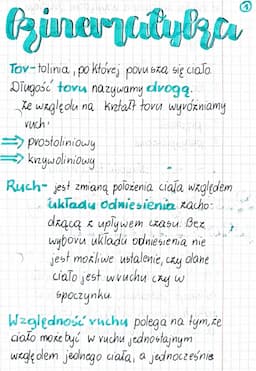 Kinematyka
1
Tor-tolinia, po której porusza się ciało.
Długość toru nazywamy drogą.
Ze względu na kształt toru wyróżniamy
ruch:
⇒ prostoliniowy
⇒ krzywoliniowy
Ruch- jest zmianą położenia ciała względem
układu odniesienia zacho-
dzącą z upływem czasu. Bez
wyboru układu odniesienia nie
jest możliwe ustalenie, czy dane
ciało jest w ruchu czy w
spoczynku.
Względność ruchu polega na tym, że
ciało może być w ruchu jednostajnym
względem jednego ciała, a jednocześnie